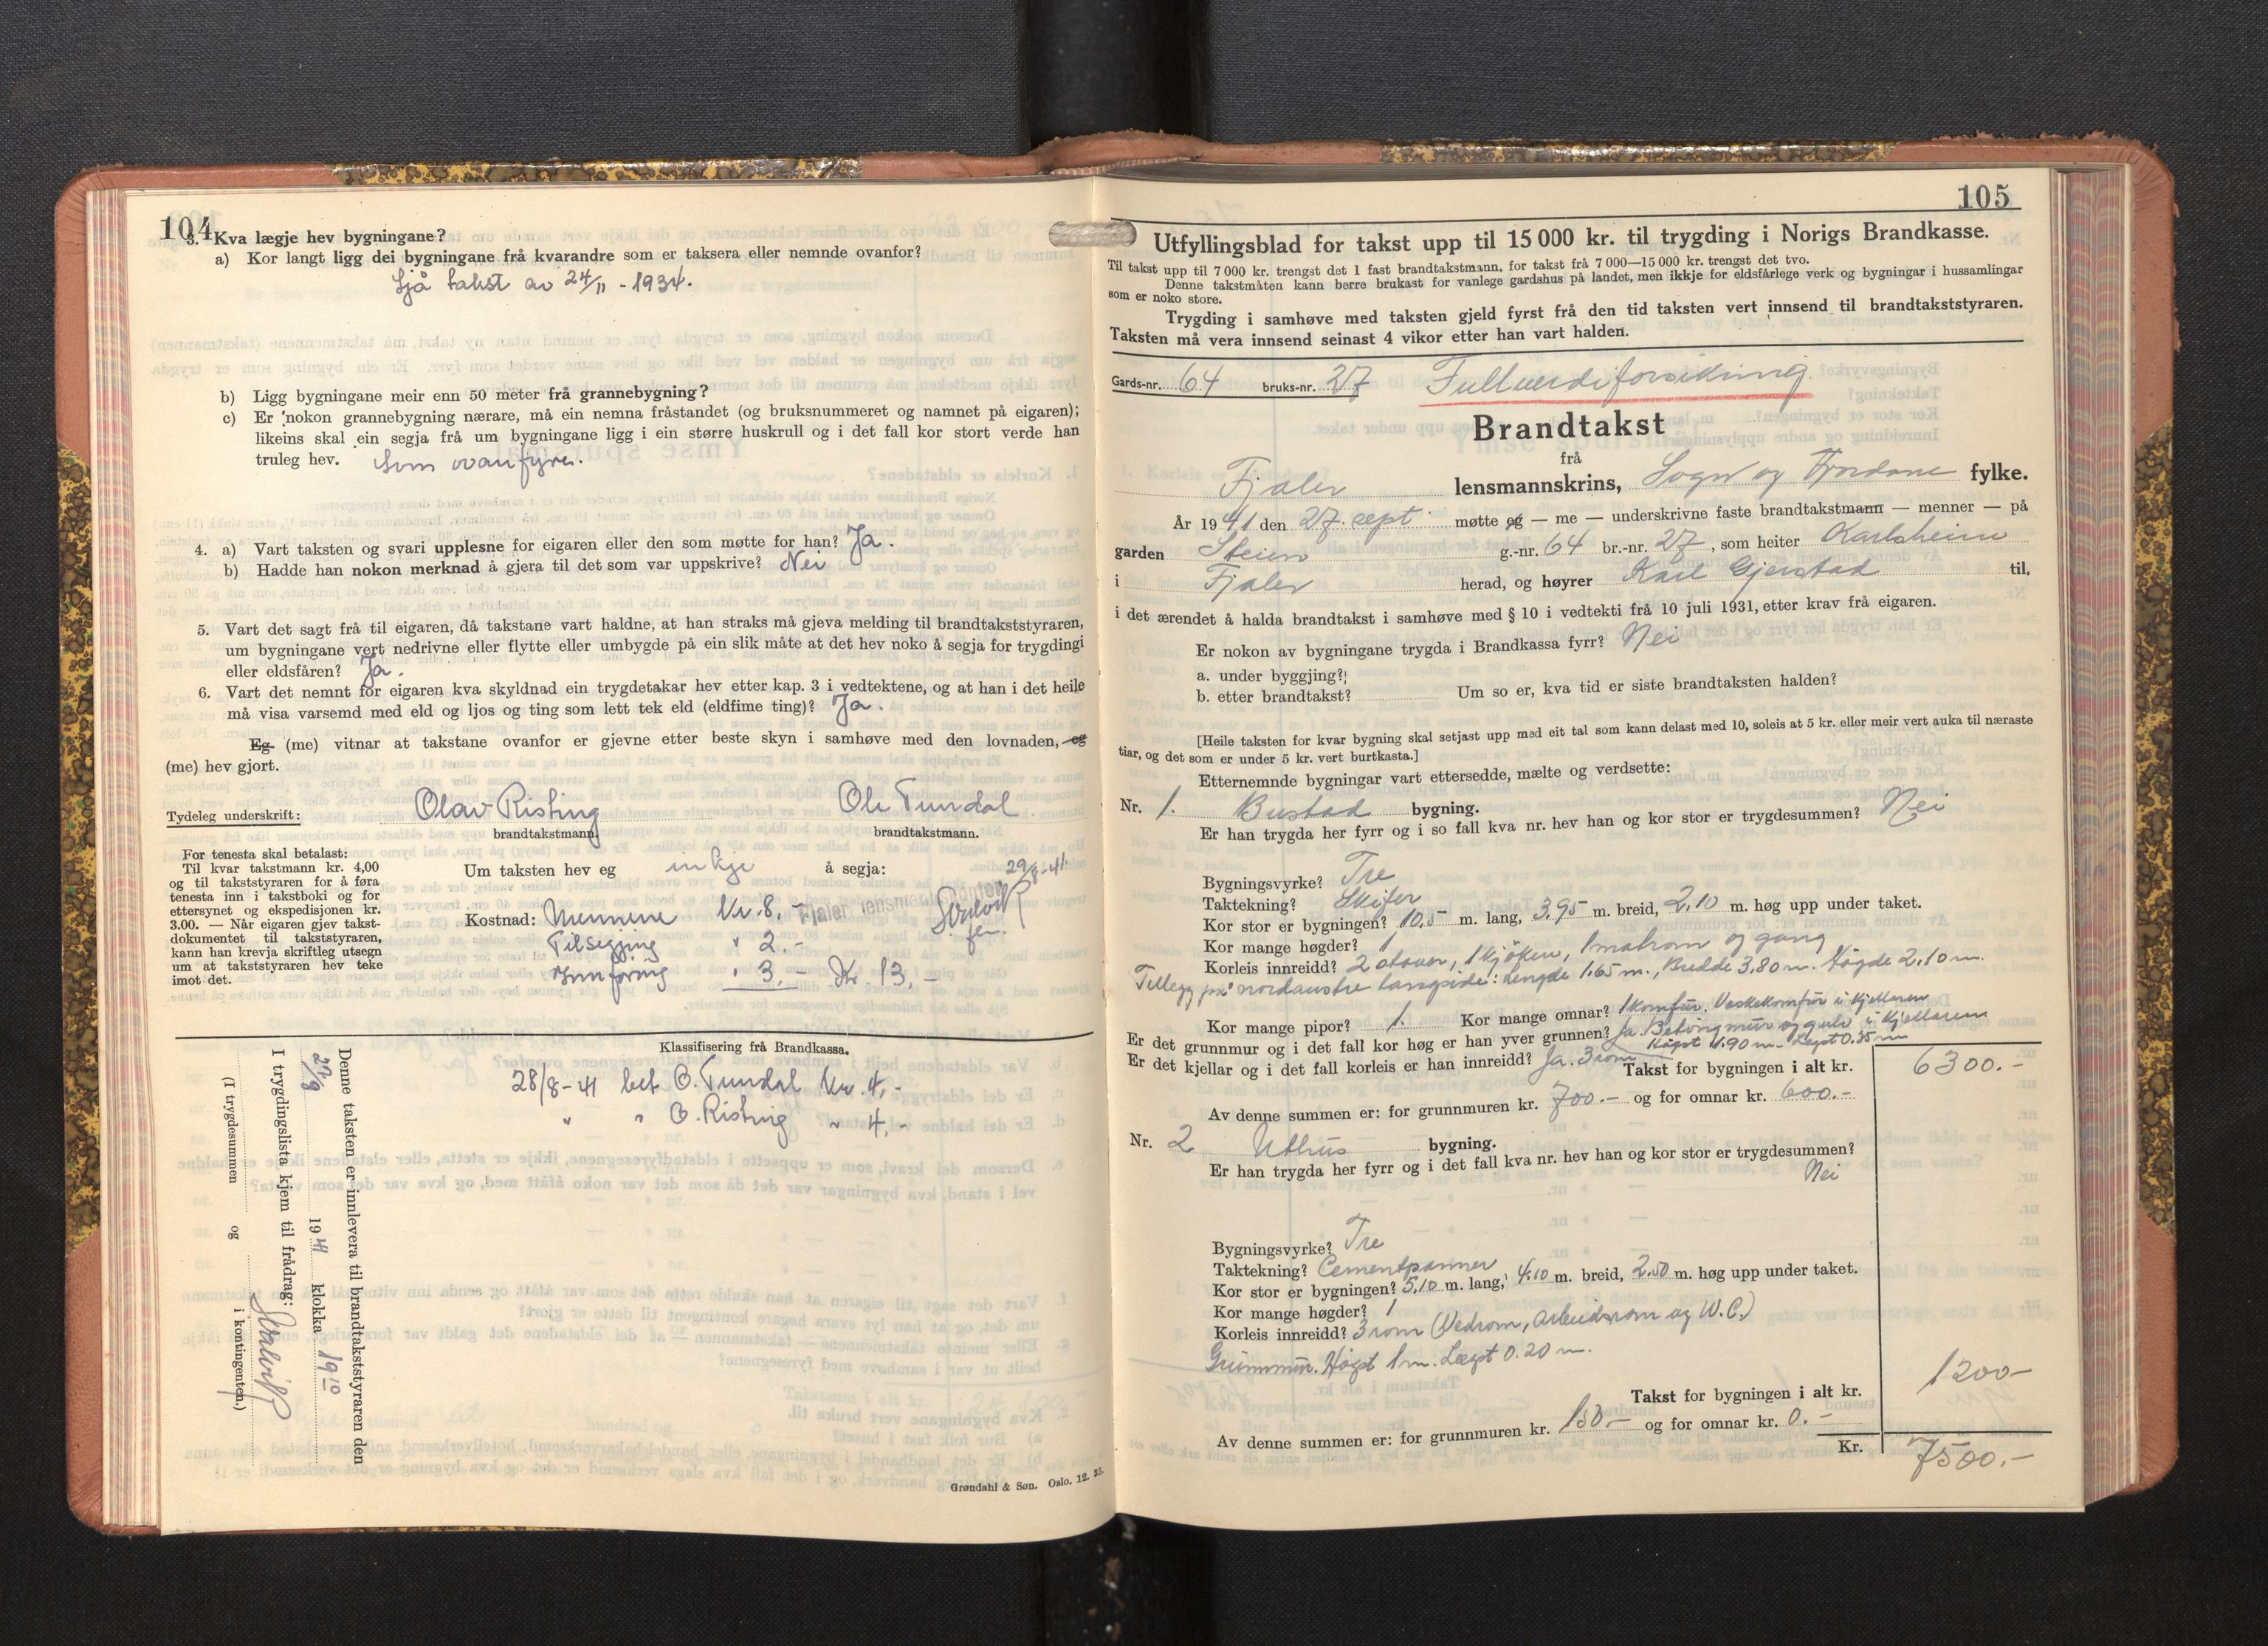 104
3. Kva lægje hev bygningane?
a) Kor langt ligg dei bygningane frå kvarandre som er taksera eller nemnde ovanfor?
Sjå takst av 24/11 - 1934.
b) Ligg bygningane meir enn 50 meter frå grannebygning?
c) Er nokon grannebygning nærare, må ein nemna fråstandet (og bruksnummeret og namnet på eigaren);
likeins skal ein segja frå um bygningane ligg i ein større huskrull og i det fall kor stort verde han
truleg hev. Som ovanfyre.
4. a) Vart taksten og svari upplesne for eigaren eller den som møtte for han? Ja.
b) Hadde han nokon merknad å gjera til det som var uppskrive? Nei
5. Vart det sagt frå til eigaren, då takstane vart haldne, at han straks må gjeva melding til brandtakststyraren,
um bygningane vert nedrivne eller flytte eller umbygde på ein slik måte at det hev noko å segja for trygdingi
eller eldsfåren? Ja.
6. Vart det nemnt for eigaren kva skyldnad ein trygdetakar hev etter kap. 3 i vedtektene, og at han i det heile
må visa varsemd med eld og ljos og ting som lett tek eld (eldfime ting)? Ja.
Eg (me) vitnar at takstane ovanfor er gjevne etter beste skyn i samhøve med den lovnaden, eg
(me) hev gjort.
Tydeleg underskrift: Olav Risting Ole Tundal
brandtakstmann. brandtakstmann.
For tenesta skal betalast:
Til kvar takstmann kr. 4,00
og til takststyraren for å føra
tenesta inn i takstboki og for
ettersynet og ekspedisjonen kr.
3.00. — Når eigaren gjev takst-
dokumentet til takststyraren,
kann han krevja skriftleg utsegn
um at takststyraren hev teke
imot det.
Um taksten hev eg inkje å segja: 29/8-41.
Fjaler lensmannskontor
Kostnad: Mennene Kr. 8,-
Tilsegjing " 2.-
Innføring " 3.- Kr. 13.-
Klassifisering frå Brandkassa.
28/8-41 bet O. Tundal Kr. 4,-
" " O. Risting " 4,-
Denne taksten er innlevera til brandtakststyraren den
27/9 1941 klokka 19 10
I trygdingslista kjem til frådrag:
(I trygdesummen og i kontingenten.)
Grøndahl & Søn. Oslo. 12. 35.
105
Utfyllingsblad for takst upp til 15 000 kr. til trygding i Norigs Brandkasse.
Til takst upp til 7 000 kr. trengst det 1 fast brandtakstmann, for takst frå 7 000—15 000 kr. trengst det tvo.
Denne takstmåten kann berre brukast for vanlege gardshus på landet, men ikkje for eldsfårlege verk og bygningar i hussamlingar
som er noko store.
Trygding i samhøve med taksten gjeld fyrst frå den tid taksten vert innsend til brandtakststyraren.
Taksten må vera innsend seinast 4 vikor etter han vart halden.
Gards-nr. 64 bruks-nr. 27 Fullverdiforsikring.
Brandtakst
frå
Fjaler lensmannskrins, Sogn og Fjordane fylke.
År 1941 den 27. sept. møtte eg — me — underskrivne faste brandtakstmann — menner — på
garden Steien g.-nr. 64 br.-nr. 27, som heiter Karlsheim
i Fjaler herad, og høyrer Karl Gjerstad til,
i det ærendet å halda brandtakst i samhøve med § 10 i vedtekti frå 10 juli 1931, etter krav frå eigaren.
Er nokon av bygningane trygda i Brandkassa fyrr? Nei
a. under byggjing?
b. etter brandtakst? Um so er, kva tid er siste brandtaksten halden?
[Heile taksten for kvar bygning skal setjast upp med eit tal som kann delast med 10, soleis at 5 kr. eller meir vert auka til næraste
tiar, og det som er under 5 kr. vert burtkasta.]
Etternemnde bygningar vart ettersedde, mælte og verdsette:
Nr. 1. Bustad bygning.
Er han trygda her fyrr og i so fall kva nr. hev han og kor stor er trygdesummen? Nei
Bygningsvyrke? Tre
Taktekning? Skifer
Kor stor er bygningen? 10,5 m. lang, 3,95 m. breid, 2,10 m. høg upp under taket.
Kor mange høgder? 1
Korleis innreidd? 2 stover, 1 kjøken, 1 matrom og gang
Tillegg på nordaustre langside: Lengde 1.65 m., Bredde 3,80 m. Høgde 2.10 m.
Kor mange pipor? 1. Kor mange omnar? 1 komfür. Vaskekomfür i kjellaren
Er det grunnmur og i det fall kor høg er han yver grunnen? Ja. Betongmür og gulv i kjellaren
Høgst 1.90 m. Lægst 0.35 m
Er det kjellar og i det fall korleis er han innreidd? Ja. 3 rom
Takst for bygningen i alt kr. 6300.-
Av denne summen er: for grunnmuren kr. 700.- og for omnar kr. 600.-
Nr. 2 Uthus bygning.
Er han trygda her fyrr og i det fall kva nr. hev han og kor stor er trygdesummen?
Nei
Bygningsvyrke? Tre
Taktekning? Cementpanner
Kor stor er bygningen? 5,10 m. lang, 4.10 m. breid, 2.50 m. høg upp under taket.
Kor mange høgder? 1
Korleis innreidd? 3 rom (Vedrom, arbeidsrom og W.C.)
Grunnmür. Høgst 1 m. Lægst 0.20 m.
Takst for bygningen i alt kr. 1200-
Av denne summen er: for grunnmuren kr. 150.- og for omnar kr. 0.-
Kr. 7500.-